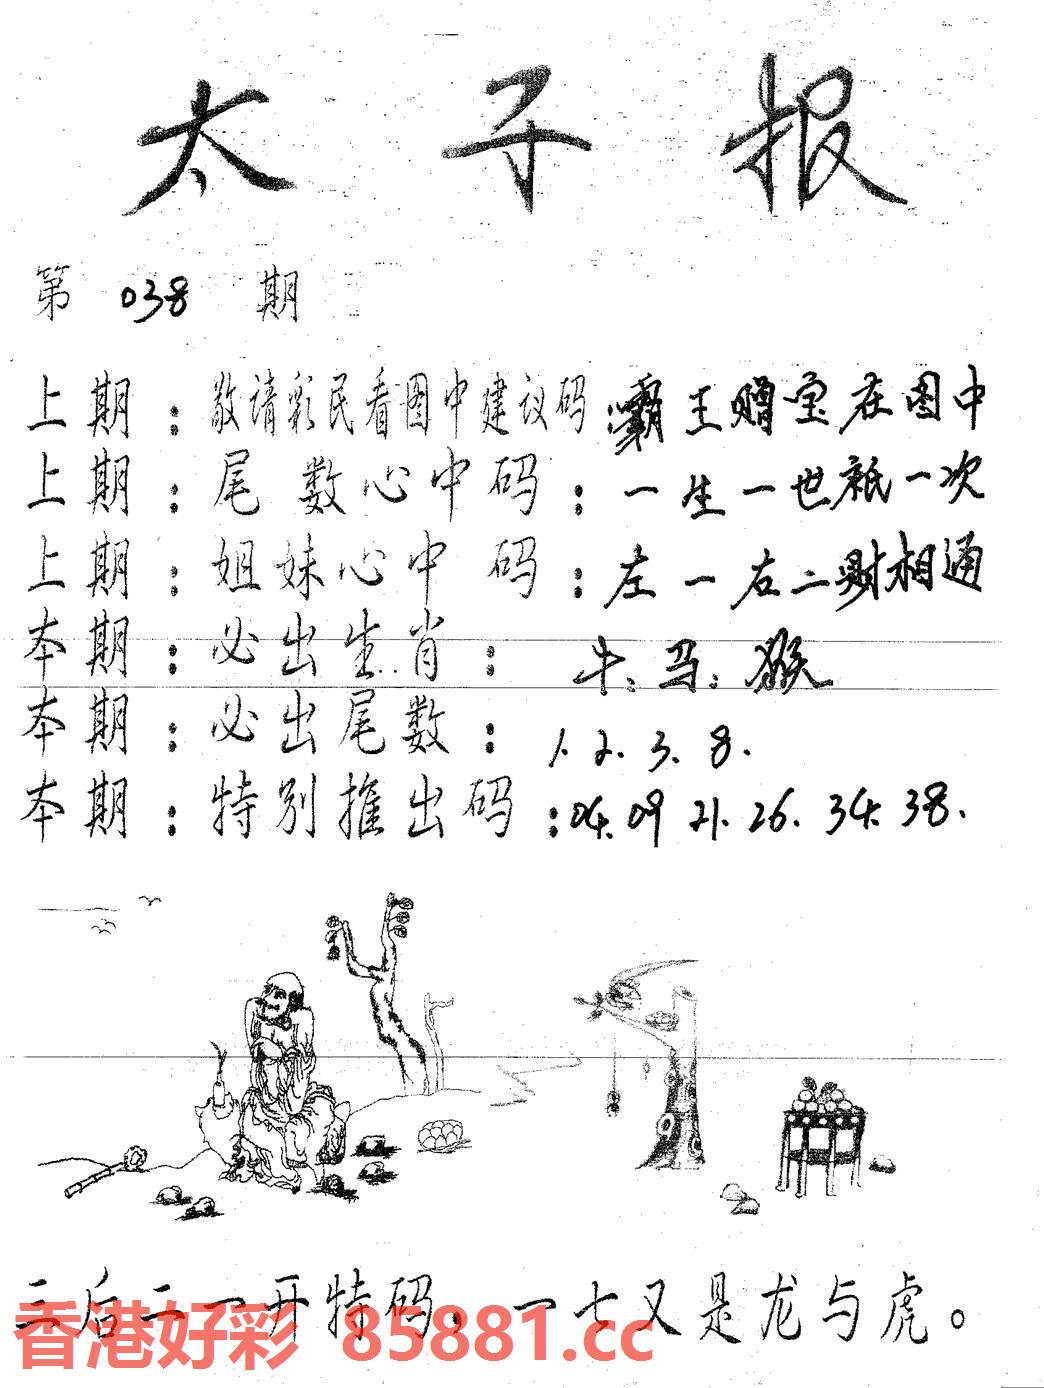 太子报
第 038 期
上期：敬请彩民看图中建议码：霸王赠宝在图中
上期：尾数心中码：一生一世祇一次
上期：姐妹心中码：左一右二财相通
本期：必出生肖：牛.马.猴
本期：必出尾数：1.2.3.8.
本期：特别推出码：04.09 21.26.34.38.
三后二一开特码，一七又是龙与虎。
香港好彩 85881.cc